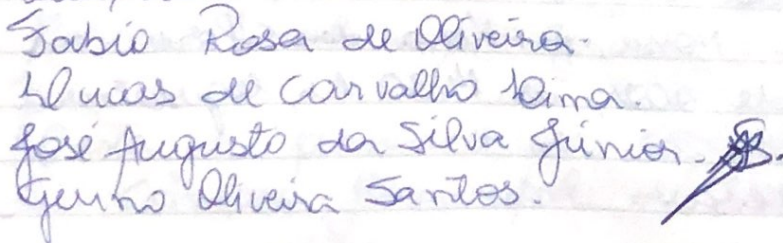 Fabio Rosa de Oliveira.
Lucas de Carvalho Lima.
José Augusto da Silva Júnior.
Oliveira Santos.